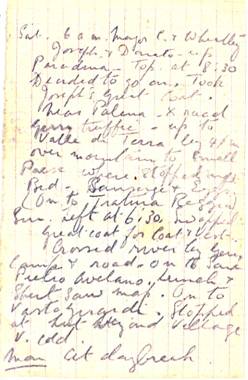 Sat. 6 a.m. Major C. & Wheatley
Joseph & Donato - up
Paradina - Top at 8:30
Decided to go on. Took
Joseph's Great Coat.
Near Palena - X road
Gerry traffic - up to
Valle di Terra by 4 p.m
over mountain to small
Paese where stopped night
Bed - Sausage & Eggs
(On to Trattura Beggio
Sun. left at 6:30 swapped
great coat for Coat & Vest.
Crossed river by Gerry
Camp & road. On to San
Pietro Avelano, lunch &
Shirt saw map. On to
Vastogirardi. Stopped
at hut beyond village
V. cold
Mon at daybreak.